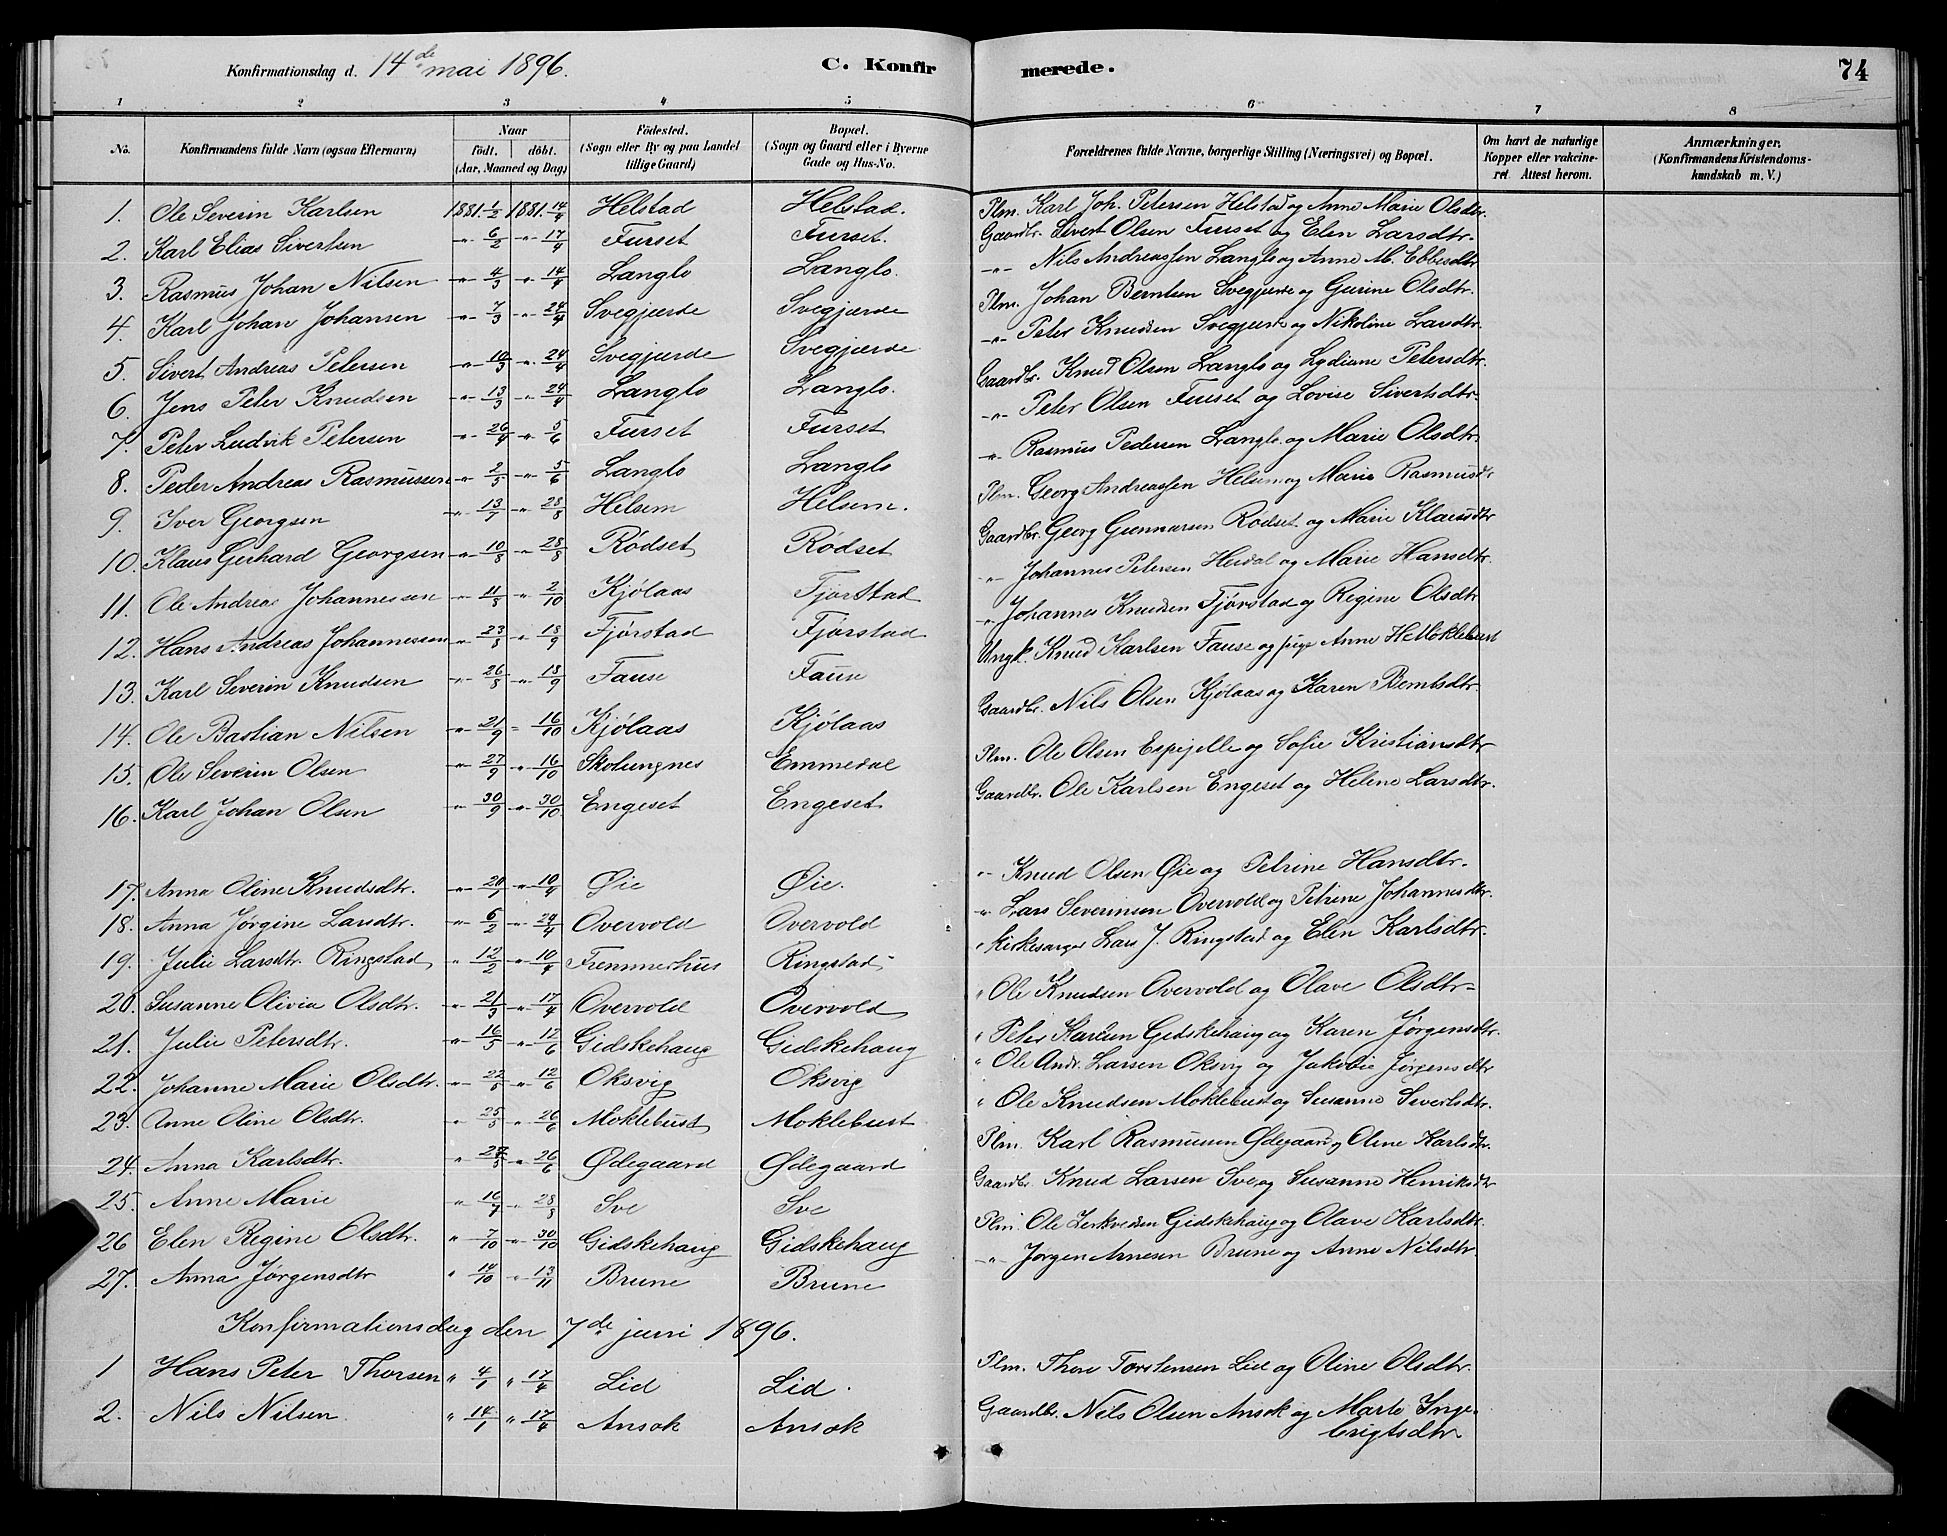 Konfirmationsdag d. 14de mai 1896. C. Konfirmerede. 74
1 2 3 4 5 6 7 8
No. Konfirmandens fulde Navn (ogsaa Efternavn) Naar födt. döbt. (Aar, Maaned og Dag) Födested. (Sogn eller By og paa Landet tillige Gaard) Bopæl. (Sogn og Gaard eller i Byerne Gade og Hus-No. Forældrenes fulde Navne, borgerlige Stilling (Næringsvei) og Bopæl. Om havt de naturlige Kopper eller vakcineret. Attest herom. Anmærkninger. (Konfirmandens Kristendomskundskab m. V.)
1. Ole Severin Karlsen 1881 1/2 1881 14/4 Helstad Helstad. Plm. Karl Joh. Petersen Helstad og Anne Marie Olsdtr.
2. Karl Elias Sivertsen " 6/2 " 17/4 Furset Furset. Gaardbr. Sivert Olsen Furset og Elen Larsdtr.
3. Rasmus Johan Nilsen " 4/3 " 14/4 Langlo Langlo. " Nils Andreassen Langlo og Anne M. Ebbesdtr
4. Karl Johan Johansen " 7/3 " 24/4 Svegjærde Svegjærde Plm. Johan Berntsen Svegjærde og Gurine Olsdtr.
5. Sivert Andreas Petersen " 10/3 " 24/4 Svegjærde Svegjærde " Peter Knudsen Svegjærde og Nikoline Larsdtr.
6. Jens Peter Knudsen " 13/3 " 24/4 Langlo Langlo. Gaardbr. Knud Olsen Langlo og Lydiane Petersdtr.
7. Peter Ludvik Petersen " 26/4 " 5/6 Furset Furset " Peter Olsen Furset og Lovise Sivertsdtr.
8. Peder Andreas Rasmussen " 2/5 " 5/6 Langlo Langlo " Rasmus Pedersen Langlo og Marie Olsdtr.
9. Iver Georgsen " 13/7 " 28/8 Helsem Helsem. Plm. Georg Andreassen Helsem og Marie Rasmusdtr
10. Klaus Gerhard Georgsen " 10/8 " 28/8 Rødset Rødset Gaardbr. Georg Gunnarsen Rødset og Marie Klausdtr
11. Ole Andreas Johannessen " 11/8 " 2/10 Kjølaas Fjørstad " Johannes Petersen Heidal og Marie Hansdtr.
12. Hans Andreas Johannessen " 23/8 " 18/9 Fjørstad Fjørstad " Johannes Knudsen Fjørstad og Regine Olsdtr
13. Karl Severin Knudsen " 26/8 " 18/9 Fause Fause Ungk. Knud Karlsen Fause og pige Anne H Moklebust
14. Ole Bastian Nilsen " 21/9 " 16/10 Kjølaas Kjølaas Gaardbr. Nils Olsen Kjølaas og Karen Berntsdtr.
15. Ole Severin Olsen " 27/9 " 16/10 Skotungnes Emmedal Plm. Ole Olsen Espejelle og Sofie Kristiansdtr
16. Karl Johan Olsen " 30/9 " 30/10 Engeset Engeset Gaardbr. Ole Karlsen Engeset og Helene Larsdtr.
17. Anna Oline Knudsdtr. " 20/1 " 10/4 Øie Øie. " Knud Olsen Øie og Petrine Hansdtr.
18. Anna Jørgine Larsdtr. " 6/2 " 24/4 Overvold Overvold " Lars Severinsen Overvold og Petrine Johannesdtr.
19. Julie Larsdtr. Ringstad " 12/2 " 10/4 Fremmerhus Ringstad " kirkesanger Lars J. Ringstad og Elen Karlsdtr.
20. Susanne Olivia Olsdtr. " 21/3 " 17/4 Overvold Overvold " Ole Knudsen Overvold og Olave Olsdtr
21. Julie Petersdtr. " 16/5 " 12/6 Gidskehaug Gidskehaug " Peter Karlsen Gidskehaug og Karen Jørgensdtr.
22. Johanne Marie Olsdtr. " 22/5 " 12/6 Oksvig Oksvig " Ole Andr. Larsen Oksvig og Jakobie Jørgensdtr
23. Anne Oline Olsdtr. " 25/5 " 26/6 Moklebust Moklebust " Ole Knudsen Moklebust og Susanne Sivertsdtr.
24. Anna Karlsdtr. " 28/5 " 26/6 Ødegaard Ødegaard Plm. Karl Rasmussen Ødegaard og Oline Karlsdtr.
25. Anne Marie " 16/7 " 28/8 Sve Sve Gaardbr. Knud Larsen Sve og Susanne Henriksdtr
26 Elen Regine Olsdtr. " 7/10 " 30/10 Gidskehaug Gidskehaug Plm. Ole Gidskehaug og Olave Karlsdtr.
27. Anna Jørgensdtr " 14/10 " 13/11 Brune Brune " Jørgen Arnesen Brune og Anne Nilsdtr.
Konfirmationsdag den 7de juni 1896.
1 Hans Peter Thorsen " 4/1 " 17/4 Lid Lid. Plm. Thore Torstensen Lid og Oline Olsdtr.
2. Nils Nilsen " 14/1 " 17/4 Ansok Ansok Gaardbr. Nils Olsen Ansok og Marte Inge-
brigtsdtr.